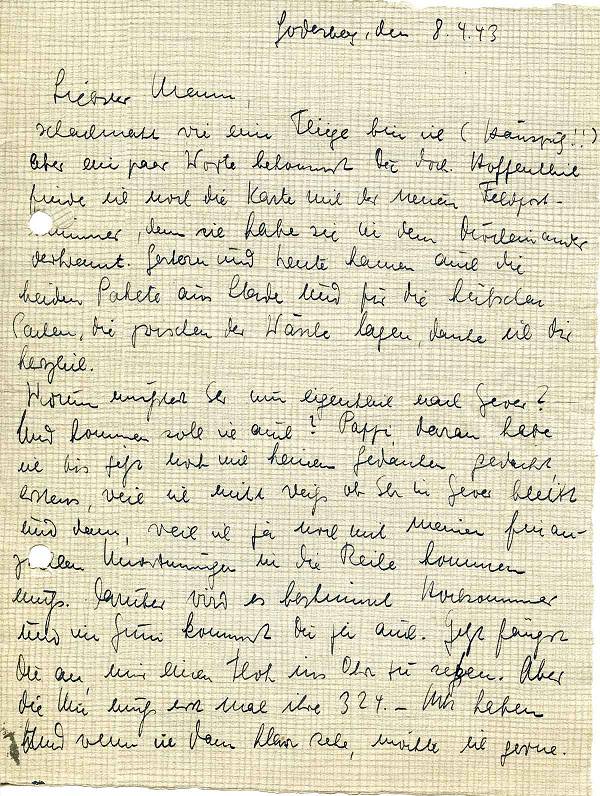 Godesberg, den 8.4.43
Liebster Mann,
schachmatt wie eine Fliege bin ich (Hausputz!!)
aber ein paar Worte bekommst Du doch. Hoffentlich
finde ich noch die Karte mit der neuen Feldpost-
nummer, denn ich habe sie in dem Durcheinander
verkramt. Gestern und heute kamen auch die
beiden Pakete aus Stade und für die hübschen
Sachen, die zwischen der Wäsche lagen, danke ich Dir
herzlich.
Warum müsst Ihr nun eigentlich nach Jever?
Und kommen soll ich auch? Pappi, daran habe
ich bis jetzt noch mit keinem Gedanken gedacht,
erstens, weil ich nicht weiss ob Ihr in Jever bleibt
und dann, weil ich ja noch mit meinen finan-
ziellen Unordnungen in die Reihe kommen
muss. Darüber wird es bestimmt Hochsommer
und im Juni kommst Du ja auch. Jetzt fängst
Du an, mir einen Floh ins Ohr zu setzen. Aber
die Mu muss erst mal ihre 324.– Mk haben
Und wenn ich dann klar sehe, möchte ich gerne.